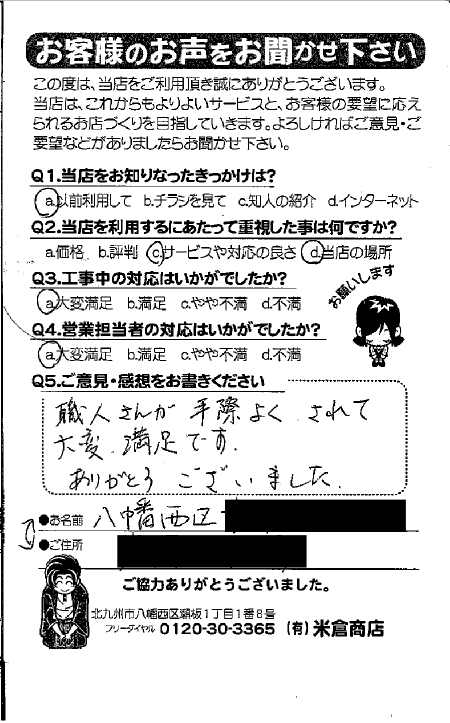 お客様のお声をお聞かせ下さい
この度は、当店をご利用頂き誠にありがとうございます。
当店は、これからもよりよいサービスと、お客様の要望に応え
られるお店づくりを目指していきます。よろしければご意見・ご
要望などがありましたらお聞かせ下さい。
Q1.当店をお知りなったきっかけは?
a.以前利用して b.チラシを見て c.知人の紹介 d.インターネット
Q2.当店を利用するにあたって重視した事は何ですか?
a.価格 b.評判 c.サービスや対応の良さ d.当店の場所
Q3.工事中の対応はいかがでしたか?
a.大変満足 b.満足 c.やや不満 d.不満
お願いします
Q4.営業担当者の対応はいかがでしたか?
a.大変満足 b.満足 c.やや不満 d.不満
Q5.ご意見・感想をお書きください
職人さんが 手際よく されて
大変、満足です。
ありがとう ございました。
●お名前 八幡西区
●ご住所
ご協力ありがとうございました。
北九州市八幡西区瀬板1丁目1番8号
フリーダイヤル 0120-30-3365 (有)米倉商店